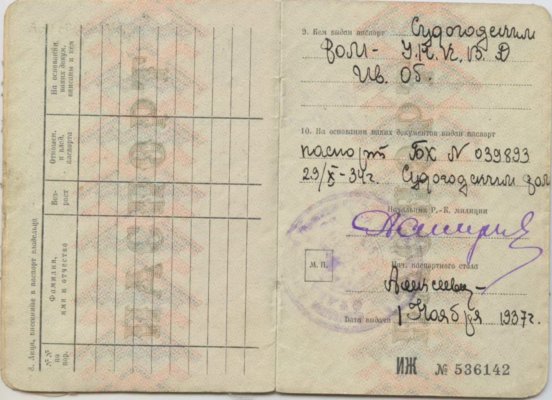 8. Лица, вписанные в паспорт владельца
№№ по пор.
Фамилия, имя и отчество
Возраст
Отношен. к влад. паспорта
На основании каких докум. вписаны и кем
ПАСПОРТ
9. Кем выдан паспорт Судогодским
РОМ- У.Н.К.В.Д
Ив. Об.
10. На основании каких документов выдан паспорт
паспорт БЖ N 039893
29/X-34г. Судогодским
Начальник Р.-К. милиции
М. П.
Нач. паспортного стола
Алексеев
Дата выдачи 1 Ноября 1937г.
ИЖ № 536142